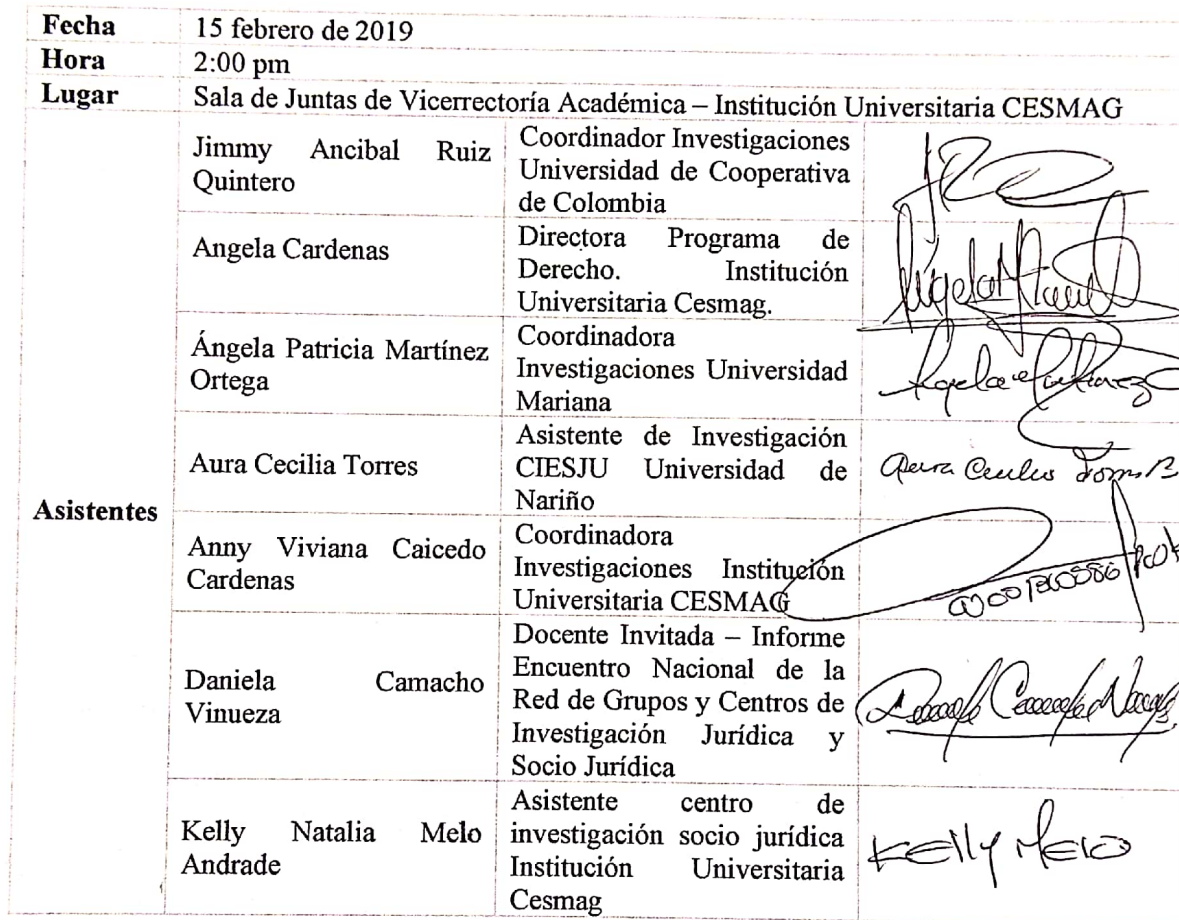 Fecha 15 febrero de 2019
Hora 2:00 pm
Lugar Sala de Juntas de Vicerrectoría Académica – Institución Universitaria CESMAG
Asistentes
Jimmy Ancibal Ruiz
Quintero
Coordinador Investigaciones
Universidad de Cooperativa
de Colombia
Angela Cardenas
Directora Programa de
Derecho. Institución
Universitaria Cesmag.
Ángela Patricia Martínez
Ortega
Coordinadora
Investigaciones Universidad
Mariana
Aura Cecilia Torres
Asistente de Investigación
CIESJU Universidad de
Nariño
Aura Cecilia Torres B
Anny Viviana Caicedo
Cardenas
Coordinadora
Investigaciones Institución
Universitaria CESMAG
Daniela Camacho
Vinueza
Docente Invitada – Informe
Encuentro Nacional de la
Red de Grupos y Centros de
Investigación Jurídica y
Socio Jurídica
Kelly Natalia Melo
Andrade
Asistente centro de
investigación socio jurídica
Institución Universitaria
Cesmag
Kelly Melo